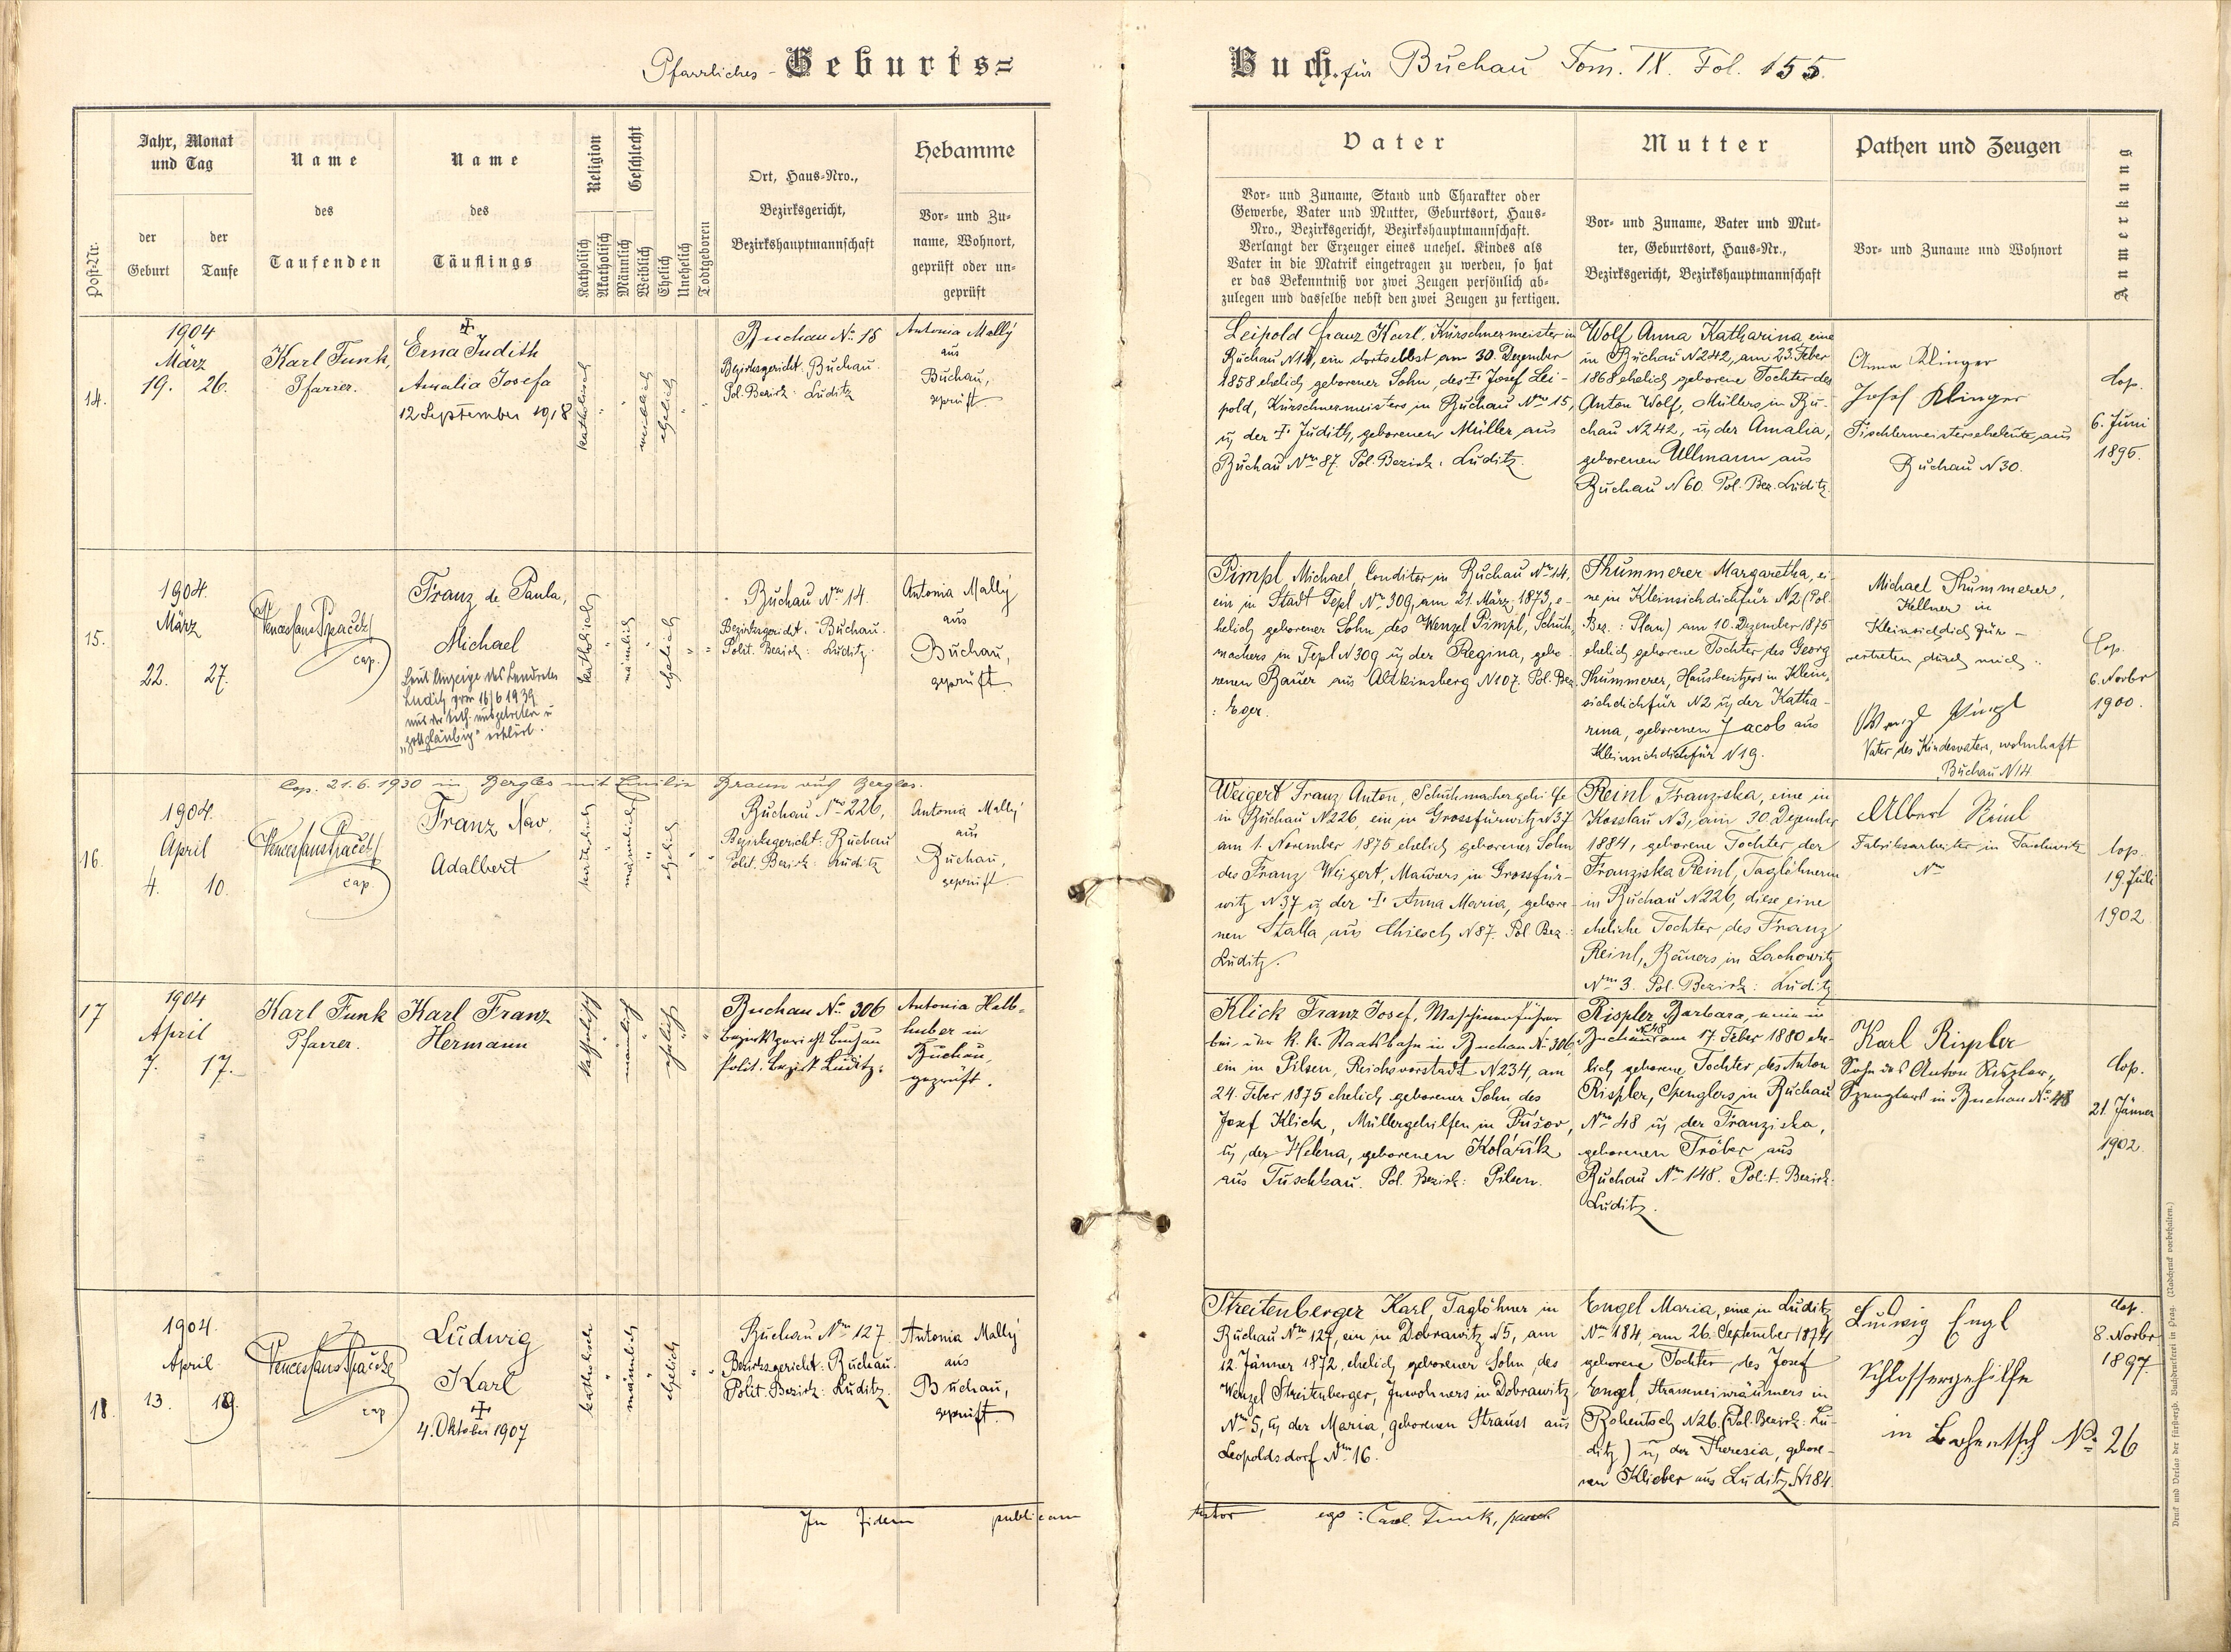 Pfarrliches - Geburts=
Buch für Buchau Tom. IX. Fol. 155.
Post-Nr.
Jahr, Monat
und Tag
der
Geburt
der
Taufe
Name
des
Taufenden
Name
des
Täuflings
Religion
Katholisch
Akatholisch
Geschlecht
Männlich
Weiblich
Ehelich
Unehelich
Todtgeboren
Ort, Haus-Nro.,
Bezirksgericht,
Bezirkshauptmannschaft
Hebamme
Vor- und Zu-
name, Wohnort,
geprüft oder un-
geprüft
Vater
Vor- und Zuname, Stand und Charakter oder
Gewerbe, Vater und Mutter, Geburtsort, Haus-
Nro., Bezirksgericht, Bezirkshauptmannschaft.
Verlangt der Erzeuger eines unehel. Kindes als
Vater in die Matrik eingetragen zu werden, so hat
er das Bekenntniß vor zwei Zeugen persönlich ab-
zulegen und dasselbe nebst den zwei Zeugen zu fertigen.
Mutter
Vor- und Zuname, Vater und Mut-
ter, Geburtsort, Haus-Nr.,
Bezirksgericht, Bezirkshauptmannschaft
Pathen und Zeugen
Vor- und Zuname und Wohnort
Anmerkung
14.
1904
März
19. 26.
Karl Funk,
Pfarrer.
Erna Judith
Amalia Josefa
12 September 1918
katholisch
"
"
weiblich
ehelich
"
"
Buchau No 15
Bezirksgericht: Buchau.
Pol. Bezirk: Luditz
Antonia Mally
aus
Buchau,
geprüft.
Leipold Franz Karl, Kürschnermeister in
Buchau N 15, ein dortselbst am 30. Dezember
1858 ehelich geborener Sohn, des † Josef Lei-
pold, Kürschnermeisters in Buchau Nro 15,
u der † Judith, geborenen Müller aus
Buchau Nro 87. Pol. Bezirk: Luditz.
Wolf Anna Katharina, eine
in Buchau N 242, am 23. Feber
1868 ehelich geborene Tochter des
Anton Wolf, Müllers in Bu-
chau N 242, u der Amalia,
geborenen Ullmann aus
Buchau N 60. Pol. Bez. Luditz
Anna Klinger
Josef Klinger
Tischlermeisterseheleute aus
Buchau N 30.
Cop.
6. Juni
1896.
15.
1904.
März
22. 27.
Wenceslaus Spaček
cap.
Franz de Paula,
Michael
Laut Anzeige des Landrates
Luditz vom 16/6 1939
aus der kath. ausgetreten u
"gottgläubig" erklärt.
katholisch
"
männlich
"
ehelich
"
"
Buchau Nro 14.
Bezirksgericht: Buchau.
Polit. Bezirk: Luditz.
Antonia Mally
aus
Buchau,
geprüft.
Pimpl, Michael, Conditor in Buchau Nro 14,
ein in Stadt Tepl Nro 309, am 21. März 1873, e-
helich geborener Sohn des Wenzel Pimpl, Schuh-
machers in Tepl N 309 u der Regina, gebo-
renen Bauer aus Altkinsberg N 107. Pol. Bez.
: Eger.
Thummerer Margaretha, ei-
ne in Kleinsichdichfür N 2 (Pol.
Bez.: Plan) am 10. Dezember 1875
ehelich geborene Tochter des Georg
Thummerer, Hausbesitzers in Klein-
sichdichfür N 2 u der Katha-
rina, geborenen Jacob aus
Kleinsichdichfür N 19.
Michael Thummerer,
Kellner in
Kleinsichdichfür -
vertreten durch mich:
Wenzl Pimpl
Vater des Kindesvaters, wohnhaft
Buchau N 14
Cop.
6. Novbr
1900.
Cop. 21.6.1930 in Bergles mit Emilie Braun aus Bergles.
16.
1904.
April
4. 10.
Wenceslaus Spaček
cap.
Franz Xav.
Adalbert
katholisch
"
männlich
"
ehelich
"
"
Buchau Nro 226,
Bezirksgericht: Buchau
Polit. Bezirk: Luditz
Antonia Mally
aus
Buchau,
geprüft
Weigert Franz Anton, Schuhmachergehilfe
in Buchau N 226, ein in Grossfürwitz N 37
am 1. November 1875 ehelich geborener Sohn
des Franz Weigert, Maurers in Grossfür-
witz N 37 u der † Anna Maria, gebore-
nen Stalla aus Chiesch N 87. Pol. Bez.:
Luditz.
Reinl Franziska, eine in
Kosslau N 3, am 30. Dezember
1884, geborene Tochter der
Franziska Reinl, Taglöhnerin
in Buchau N 226, diese eine
eheliche Tochter des Franz
Reinl, Bauers in Lachowitz
Nro 3. Pol. Bezirk: Luditz
Albert Reinl
Fabriksarbeiter in
Nro
Cop.
19. Juli
1902
17
1904
April
7. 17.
Karl Funk
Pfarrer.
Karl Franz
Hermann
katholisch
"
männlich
"
ehelich
"
"
Buchau No 306
Bezirksgericht Buchau
Polit. Bezirk Luditz.
Antonia Halb-
huber in
Buchau,
geprüft.
Klick Franz Josef, Maschinenführer
bei der k. k. Staatsbahn in Buchau No 306,
ein in Pilsen, Reichsvorstadt N 234, am
24. Feber 1875 ehelich geborener Sohn des
Josef Klick, Müllergehilfen in Tušov,
u der Helena, geborenen Kolařík
aus Tuschkau. Pol. Bezirk: Pilsen.
Rispler Barbara, eine in
Buchau N 48 am 17. Feber 1880 ehe-
lich geborene Tochter des Anton
Rispler, Spenglers in Buchau
Nro 48 u der Franziska,
geborenen Tröber aus
Buchau Nro 148. Polit. Bezirk:
Luditz.
Karl Rispler
Sohn des Anton Rispler,
Spenglers in Buchau No 48
Cop.
21. Jänner
1902.
18.
1904.
April
13. 19.
Wenceslaus Spaček
cap
Ludwig
Karl
†
4. Oktober 1907
katholisch
"
männlich
"
ehelich
"
"
Buchau Nro 127
Bezirksgericht: Buchau.
Polit. Bezirk: Luditz.
Antonia Mally
aus
Buchau,
geprüft.
Streitenberger Karl, Taglöhner in
Buchau Nro 127, ein in Dobrawitz N 5, am
12. Jänner 1872, ehelich geborener Sohn, des
Wenzel Streitenberger, Inwohners in Dobrawitz
Nro 5, u der Maria, geborenen Strauss aus
Leopoldsdorf Nro 16.
Engel Maria, eine in Luditz
Nro 184, am 26. September 1874
geborene Tochter des Josef
Engel, Strasseneinräumers in
Bohentsch N 26. (Pol. Bezirk: Lu-
ditz) u der Theresia, gebore-
nen Klieber aus Luditz N 184.
Ludwig Engl
Schlossergehilfe
in Bohentsch No 26
Cop.
8. Novbr
1897.
In fidem publicam
testor ego: Carl Funk, paroch
Druck und Verlag der fürsterzb. Buchdruckerei in Prag. (Nachdruck vorbehalten.)